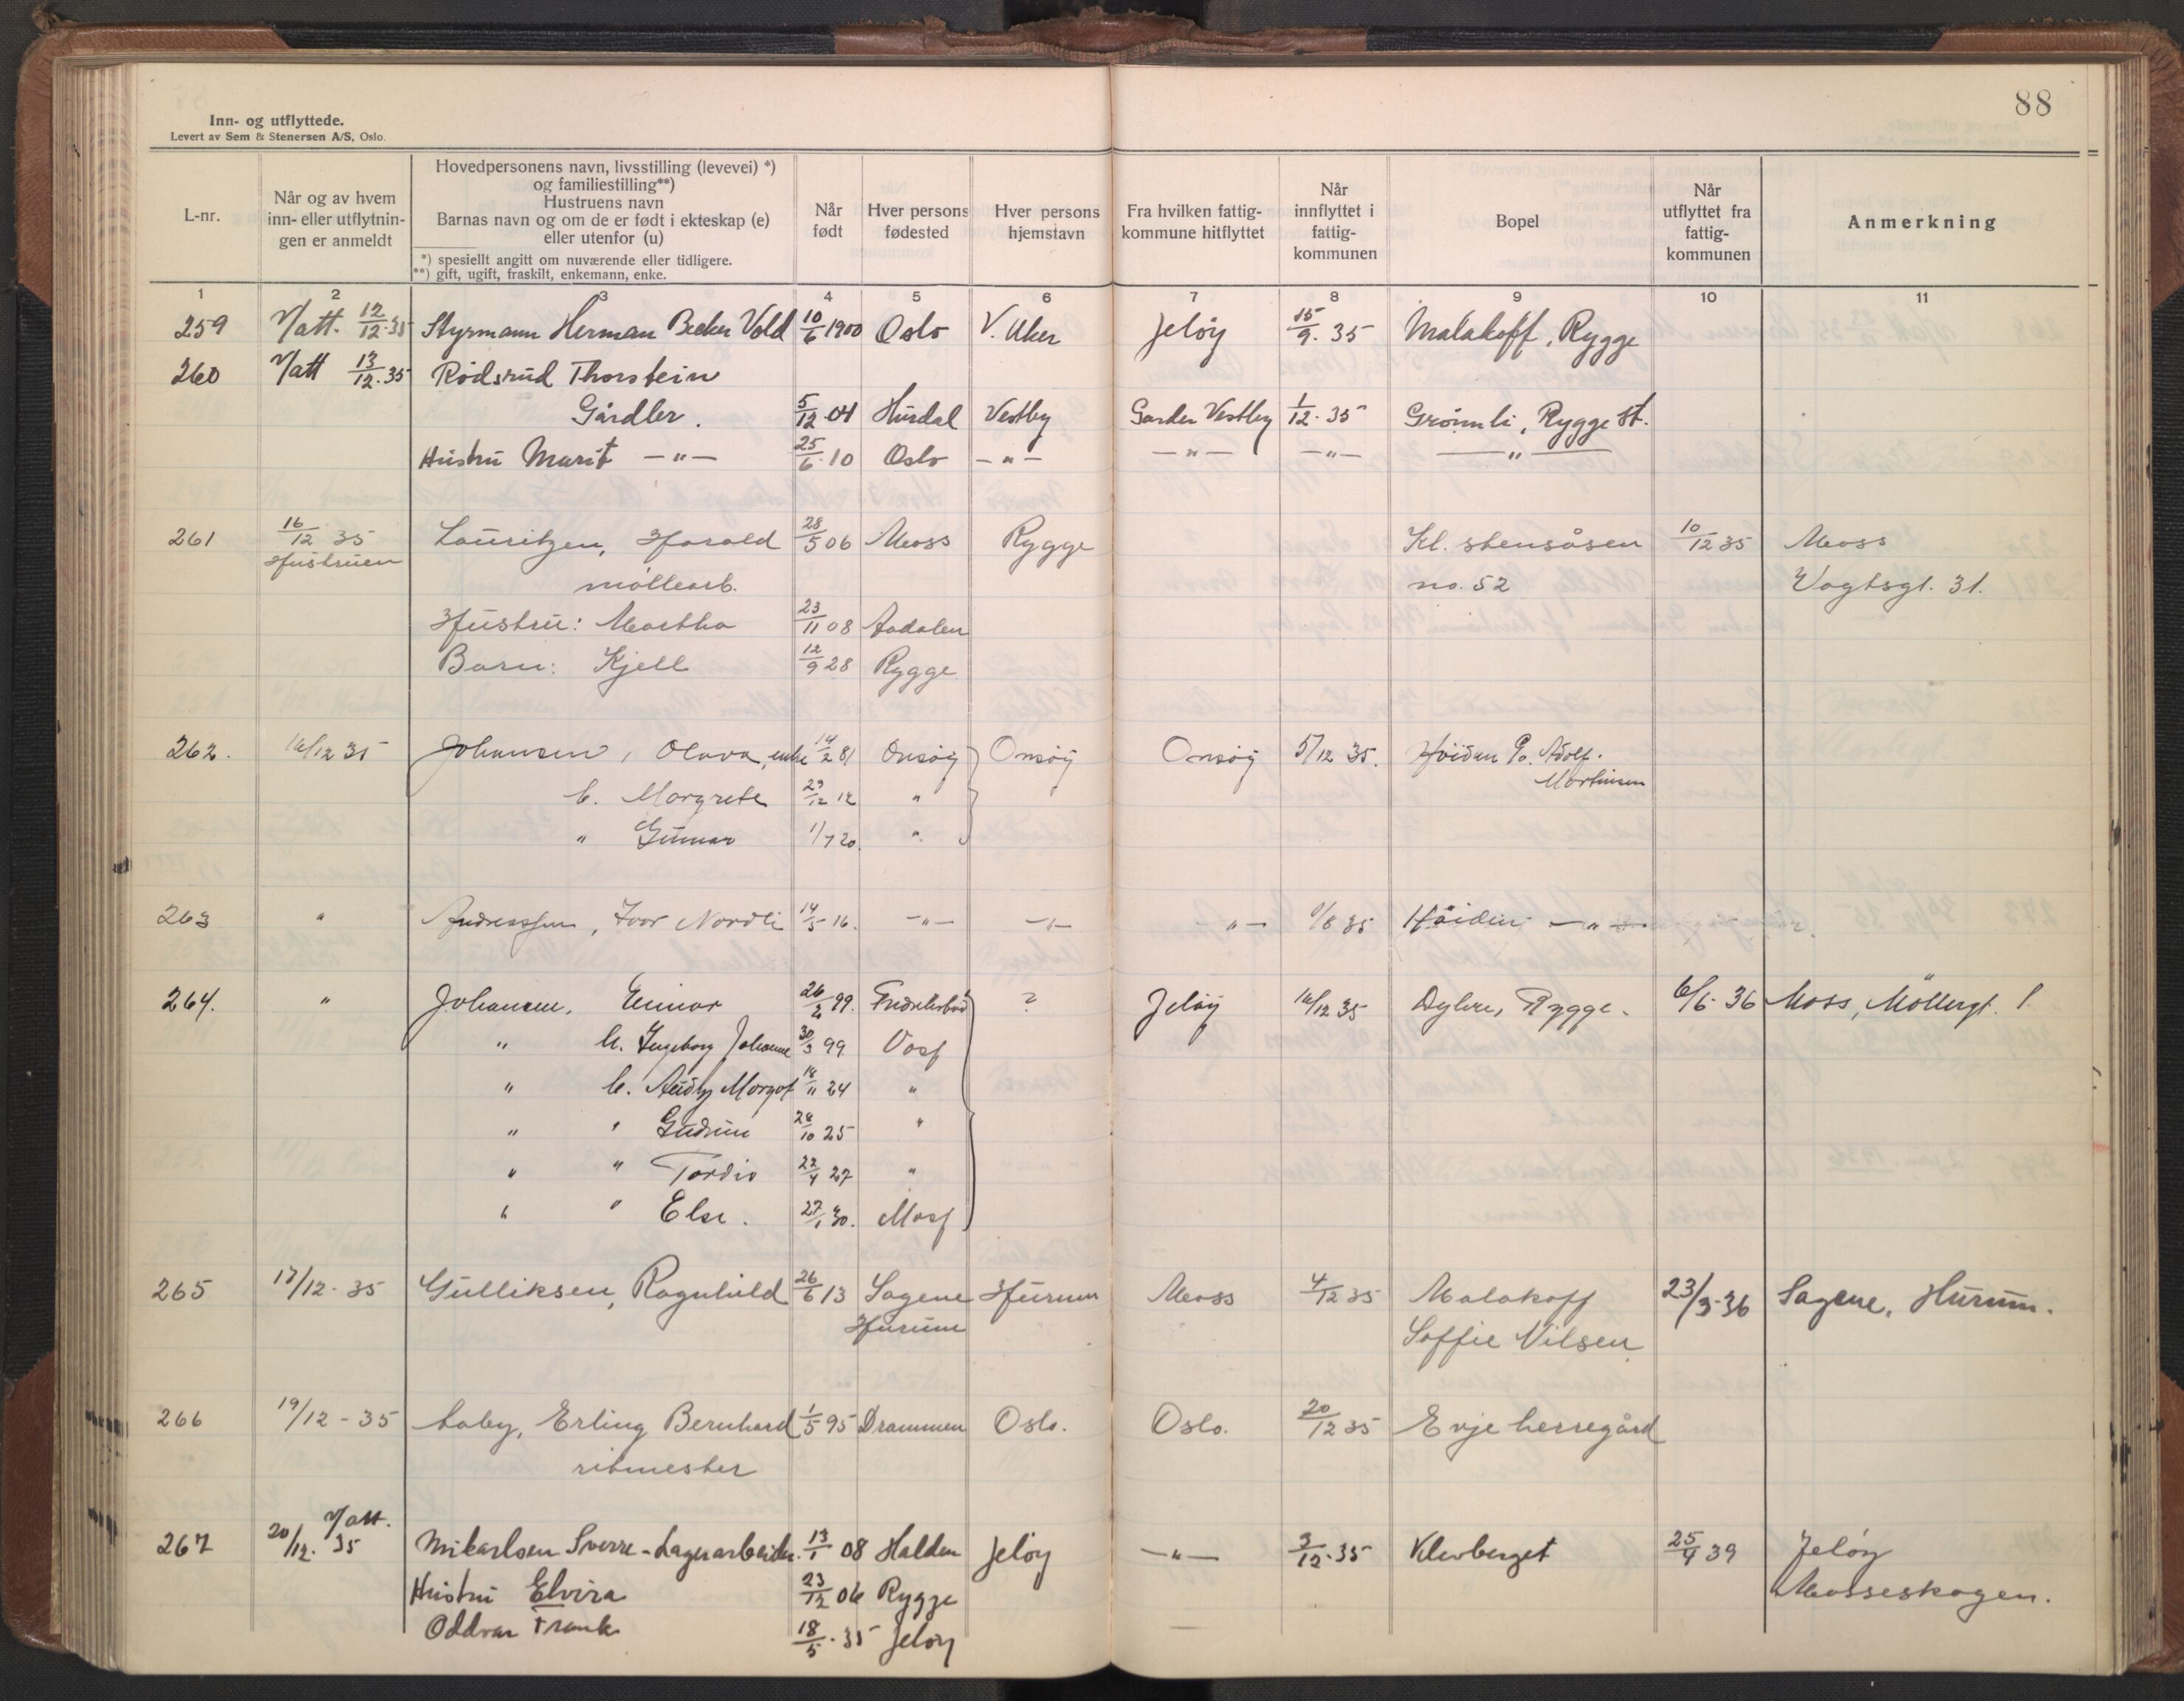 88
Inn- og utflyttede.
Levert av Sem & Stenersen A/S, Oslo.
L-nr. Når og av hvem inn- eller utflytnin- gen er anmeldt Hovedpersonens navn, livsstilling (levevei) *) og familiestilling**) Hustruens navn Barnas navn og om de er født i ekteskap (e) eller utenfor (u) Når født Hver persons fødested Hver persons hjemstavn Fra hvilken fattig- kommune hitflyttet Når innflyttet i fattig- kommunen Bopel Når utflyttet fra fattig- kommunen Anmerkning
*) spesiellt angitt om nuværende eller tidligere.
**) gift, ugift, fraskilt, enkemann, enke.
1 2 3 4 5 6 7 8 9 10 11
259 V/att. 12/12.35 Styrmann Herman Becker Vold 10/6 1900 Oslo V. Aker Jeløy 15/9.35 Malakoff, Rygge
260 V/att 13/12.35 Rødsrud Thorstein
Gårdbr. 5/12 04 Hurdal Vestby Garder Vestby 1/12.35 Grønnli, Rygge st.
Hustru Marit —"— 25/6.10 Oslo —"— —"— —"— —"—
261 16/12 35 Lauritzen, Harald 28/5 06 Moss Rygge Kl. stensåsen 10/12 35 Moss
Hustruen møllearb. no. 52 Vogtsgt. 31.
Hustru: Martha 23/11 08 Aadalen
Barn: Kjell 12/9 28 Rygge
262. 16/12 35 Johansen, Olava, enke 14/2 81 Onsøy Onsøy Onsøy 5/12 35. Høiden %. Adolf.
Martinsen
b. Margrete 29/12 12 "
" Gunnar 1/7 20. "
263 " Andreassen, Ivar Nordli 14/5 16. —"— —"— —"— 1/8 35 Høiden —"—
264. " Johansen, Einar 26/2 99. Fredrikstad ? Jeløy 16/12 35 Dylere, Rygge. 6/6 36 Moss, Møllergt. 1.
" h. Ingeborg Johanne 30/3 99 Moss
" b. Audly Margot 18/11 24 "
" " Gudrun 28/10 25 "
" " Tordis 22/4 27 "
" " Else. 27/1 30. Moss
265 17/12-35 Gulliksen, Ragnhild 26/6 13 Sagene Hurum Moss 4/12 35 Malakoff 23/3-36 Sagene, Hurum.
Hurum Soffie Nilsen
266 19/12-35 Laby, Erling Bernhard 1/5 95 Drammen Oslo. Oslo. 20/12 35 Evje herregård
ritmester
267 20/12. 35 V/att. Mikarlsen Sverre - Lagerarbeider. 13/1 08 Halden Jeløy —"— 3/12.35 Klevberget 25/4 39 Jeløy
Hustru Elvira 23/12 06 Rygge Mosseskogen.
Oddvar Frank 18/5.35 Jeløy